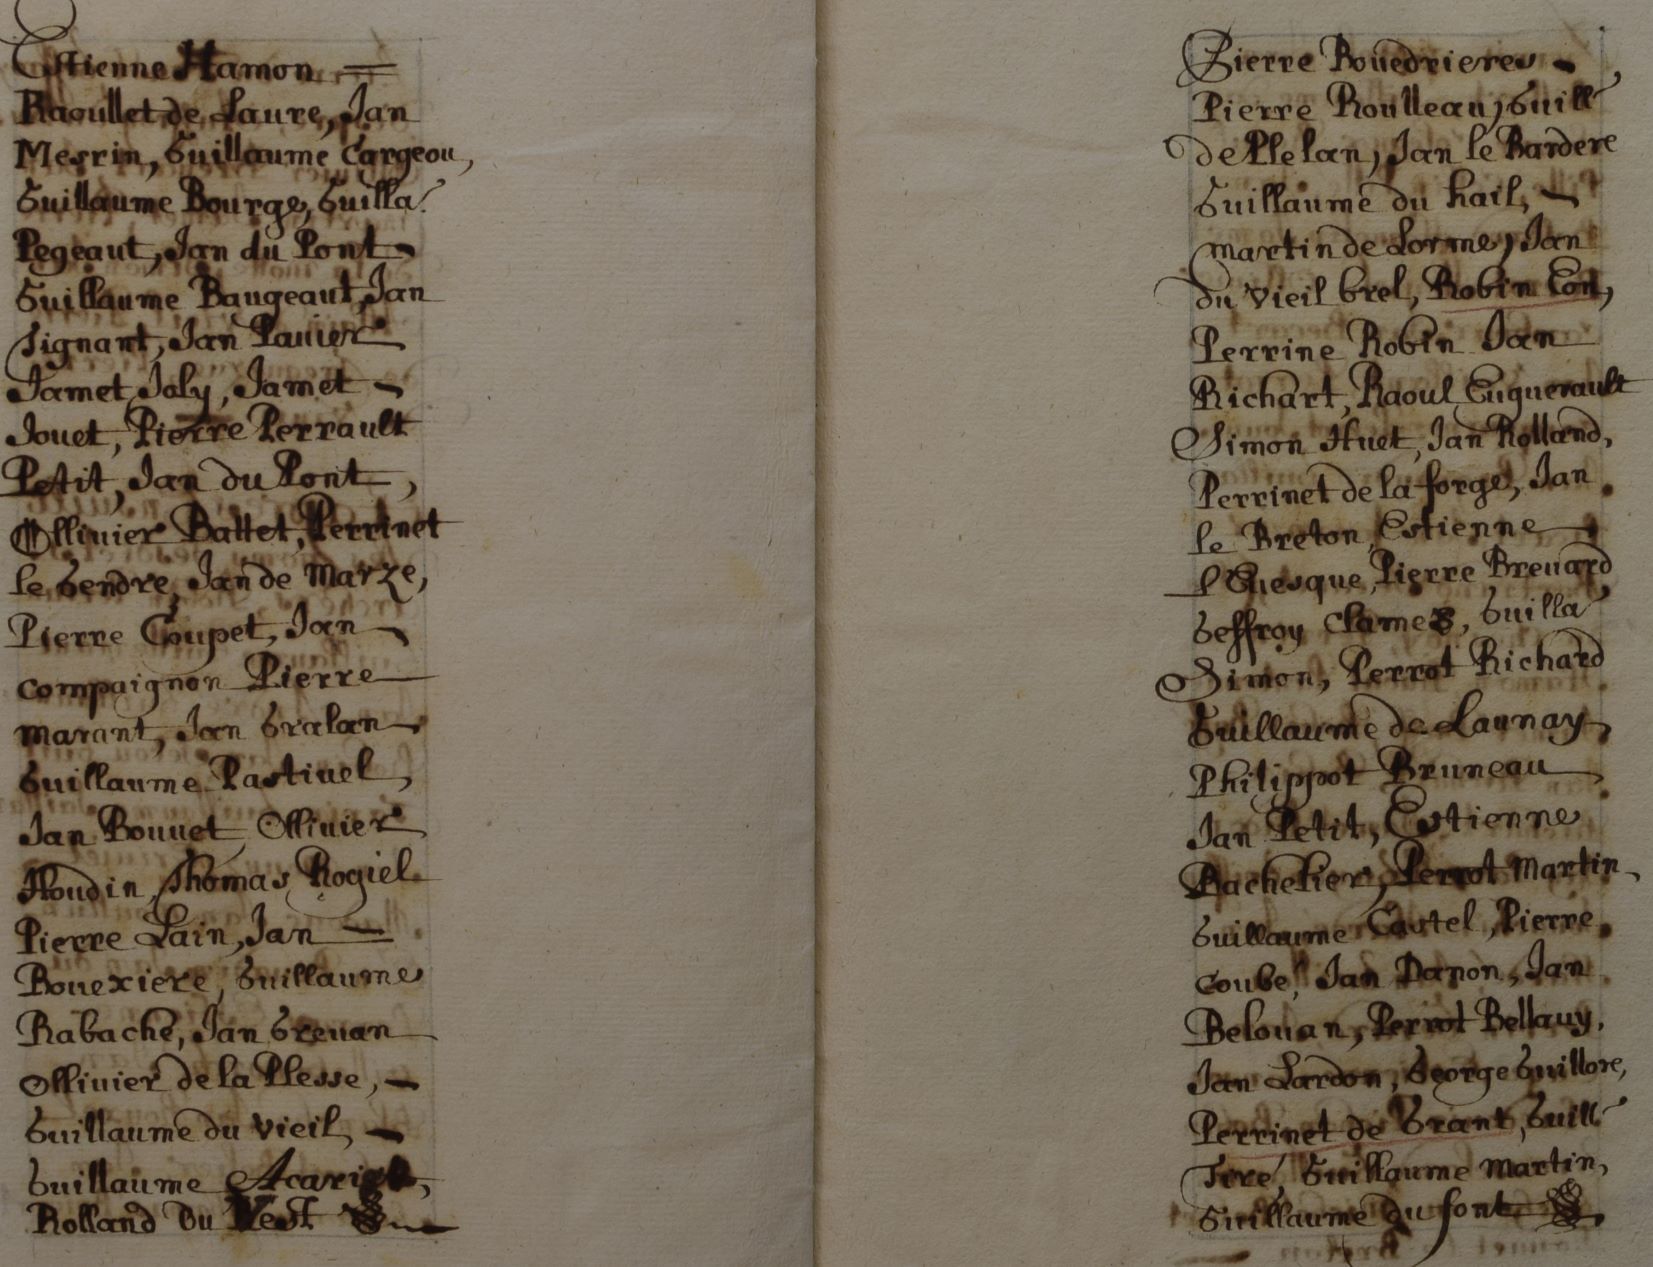 Estienne Hamon
Raoullet de Laure, Jan
Mesrin, Guillaume Cargeou,
Guillaume Bourge, Guilla.
Pegeaut, Jan du Pont
Guillaume Baugeaut, Jan
Signant, Jan Pauier
Jamet Joly, Jamet
Jouet, Pierre Perrault
Petit, Jan du Pont,
Ollivier Battet, Perrinet
le Gendre, Jan de Marze,
Pierre Coupet, Jan
compaignon Pierre
marant, Jan Gralan
Guillaume Pastiuel,
Jan Bouuet, Ollivier
Houdin, Thomas Rogiel
Pierre Lain, Jan
Bouexiere, Guillaume
Rabache, Jan Greuan
Ollivier de la Plesse,
Guillaume du vieil,
Guillaume
Rolland du Vest
Pierre Bouedrieres
Pierre Roulleau, Guill
de Plelan, Jan le Bardere
Guillaume du hail,
martin de Lorme, Jan
du vieil brel, Robin Con,
Perrine Robin Jan
Richart, Raoul Enguerault
Simon Huet, Jan Rolland,
Perrinet de la forge, Jan
le Breton, Estienne
l'Euesque, Pierre Breuard
Geffroy Clames, Guilla
Simon, Perrot Richard
Guillaume de Launay,
Philippot Bruneau
Jan Petit, Estienne
Bachelier, Perrot Martin
Guillaume Castel, Pierre
Coube, Jan Danon, Jan
Belouan, Perrot Bellauy,
Jan Lardon, George Guillore,
Perrinet de Grant, Guill
Tiré, Guillaume Martin,
Guillaume du font